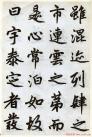 雖混迹列肆之
市連雲而
是心常泊如故
曰宇泰定者發